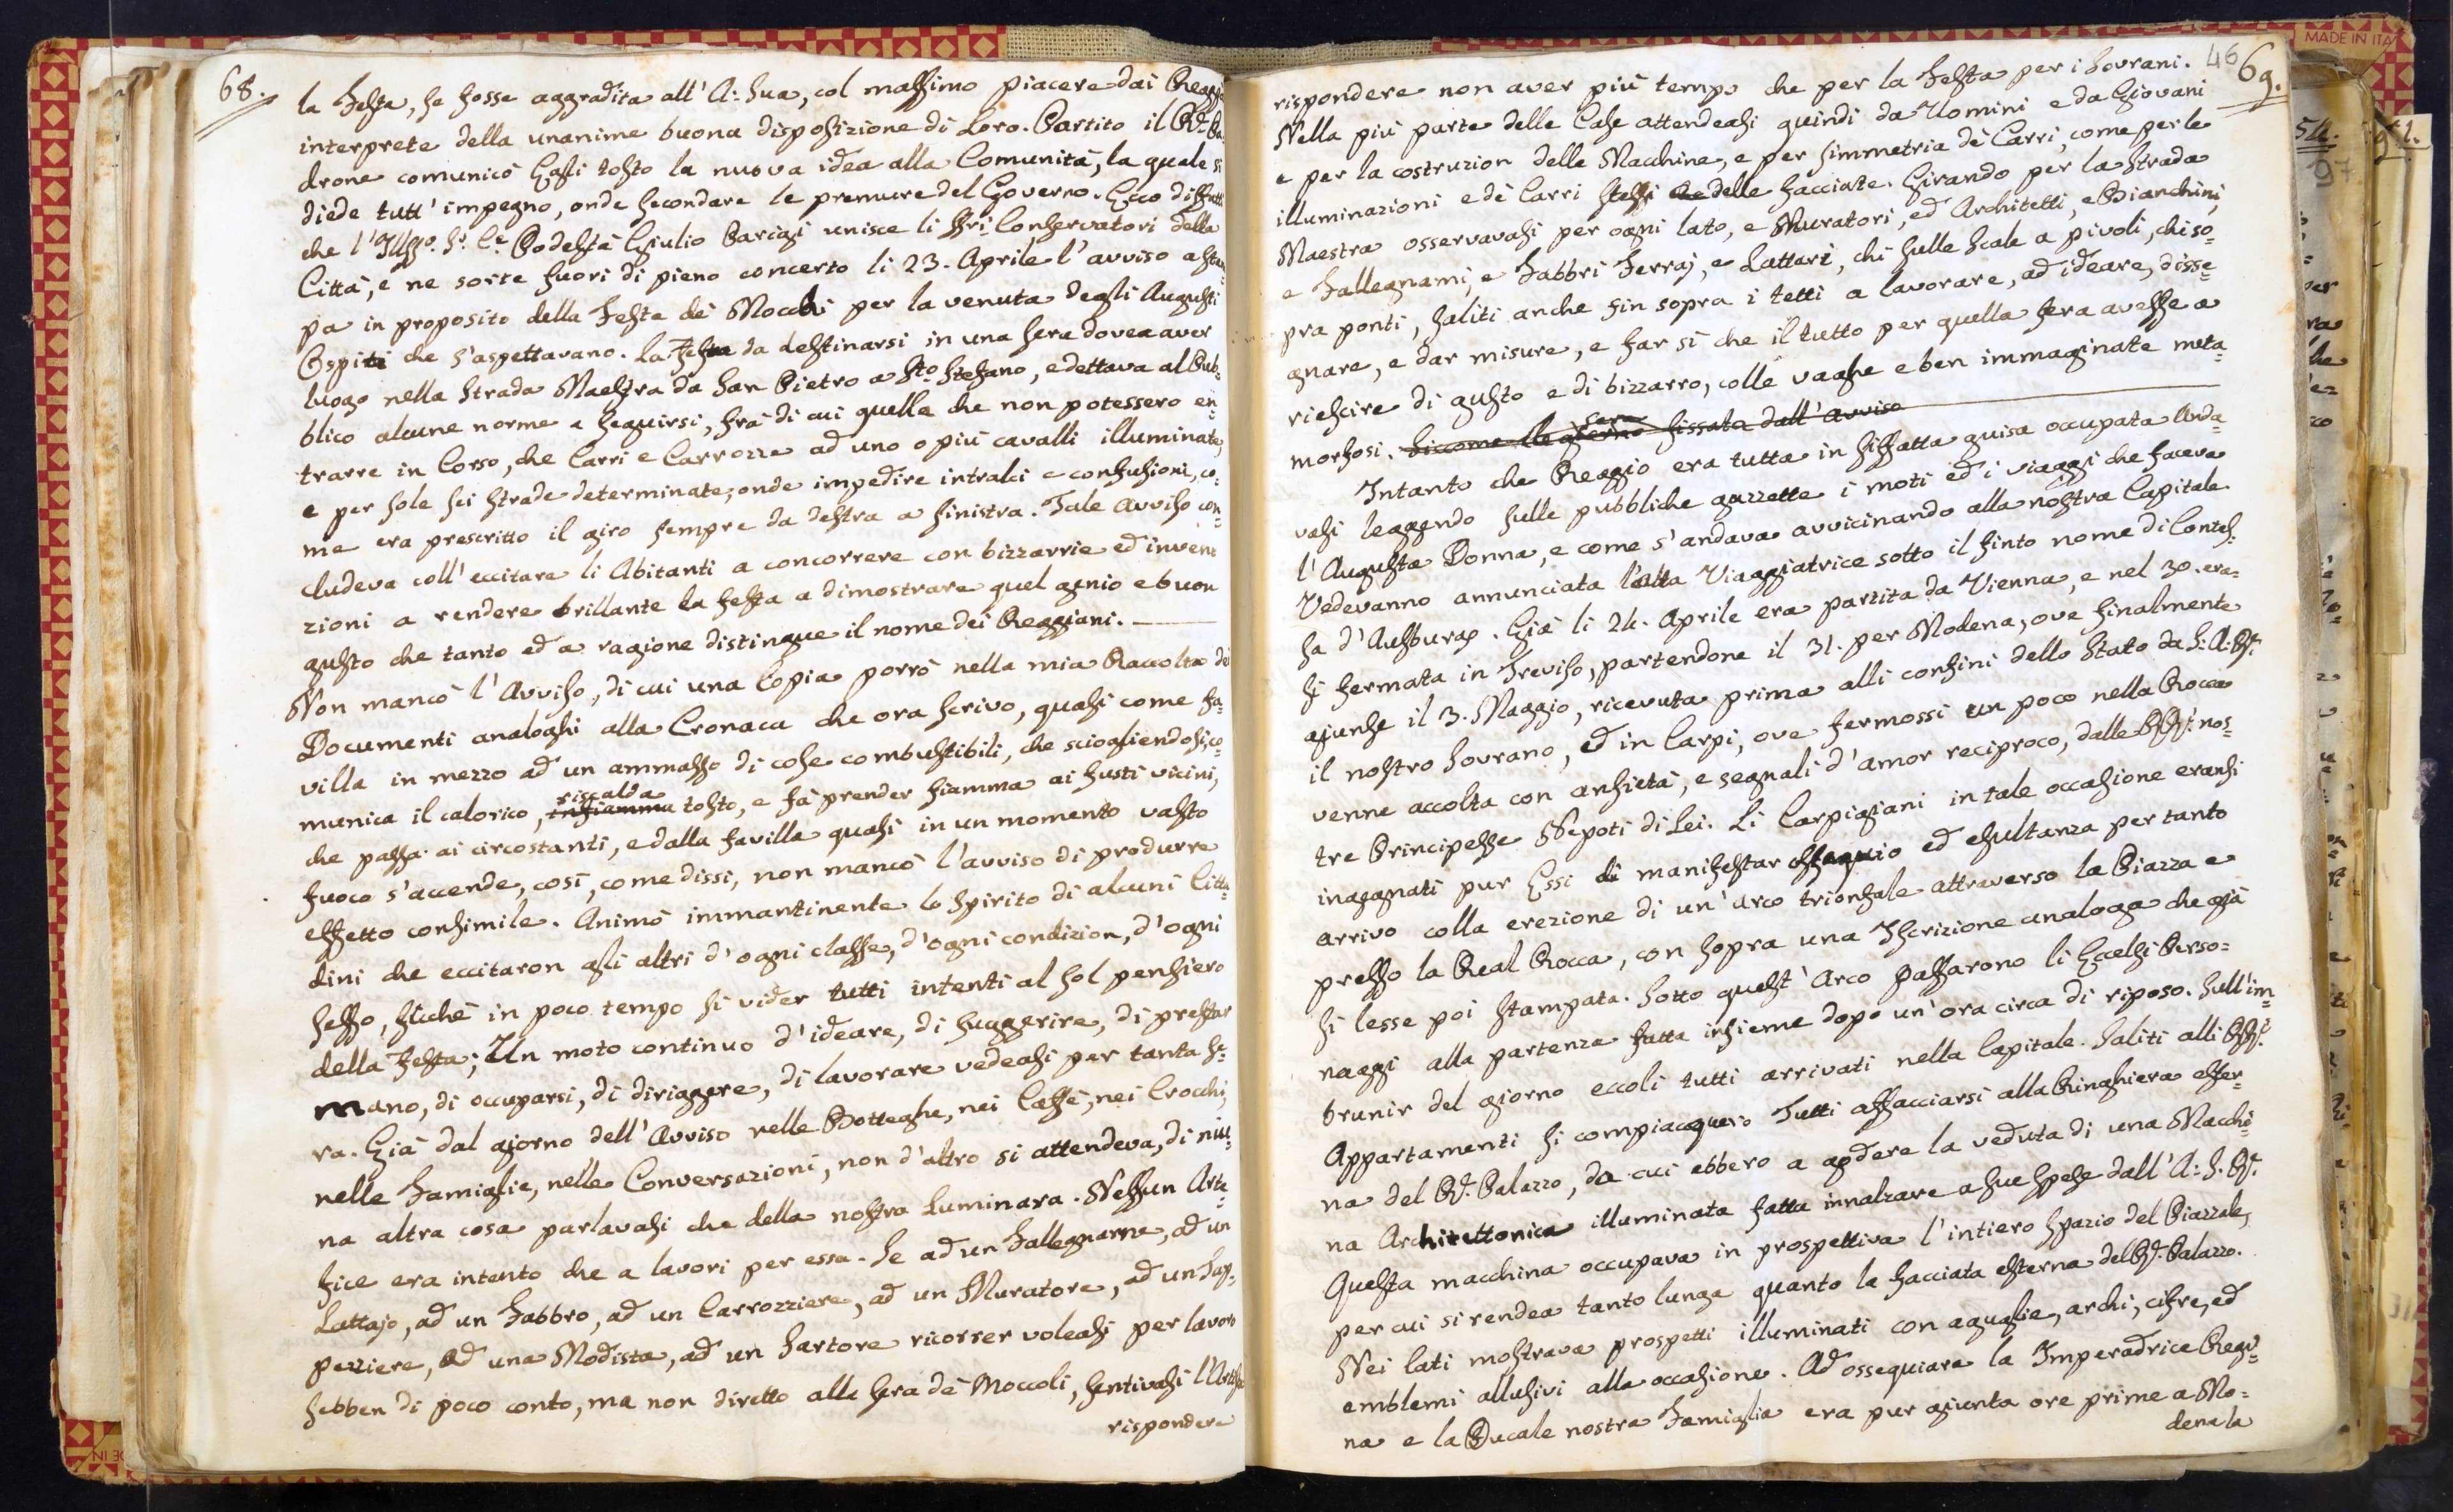 68.
la Festa, se fosse aggradita all' A: Sua, col massimo piacere dai Regg
interprete della unanime buona disposizione di Loro. Partito il Rl. Pa=
drone comunicò Egli tosto la nuova idea alla Comunità, la quale si
diede tutt' impegno, onde secondare le premure del Governo. Ecco diffatti
che l' Illmo. Sr. Ce. Podestà Giulio Parigi unisce li SSri. Conservatori della
Città, e ne sorte fuori di pieno concerto li 23. Aprile l' avviso a stam=
pa in proposito della Festa de' Moccoli per la venuta degli Augusti
Ospiti che s'aspettavano. La Festa da destinarsi in una sera dovea aver
luogo nella Strada Maestra da San Pietro a Sto. Stefano, e dettava al Pub=
blico alcune norme a seguirsi, frà di cui quelle che non potessero en=
trarre in Corso, che Carri e Carrozze ad uno o più cavalli illuminate,
e per sole sei strade determinate, onde impedire intralci e confusioni, co=
me era prescritto il giro sempre da destra a sinistra. Tale Avviso con=
cludeva coll' eccitare li Abitanti a concorrere con bizzarrie ed inven
zioni a rendere brillante la festa a dimostrare quel genio e buon
gusto che tanto ed a ragione distingue il nome dei Reggiani.
Non mancò l' Avviso, di cui una Copia porrò nella mia Raccolta dei
Documenti analoghi alla Cronaca che ora scrivo, quasi come fa=
villa in mezzo ad un ammasso di cose combustibili, che sciogliendosi, co=
riscalda
munica il calorico, infiamma tosto, e fà prender fiamma ai fusti vicini,
che passa ai circostanti, e dalla favilla quasi in un momento vasto
fuoco s'accende, così, come dissi, non mancò l'avviso di produrre
effetto consimile. Animò immantinente lo spirito di alcuni Citta=
dini che eccitaron gli altri d'ogni classe, d'ogni condizion, d'ogni
sesso, sicchè in poco tempo si vider tutti intenti al sol pensiero
della Festa; Un moto continuo d'ideare, di suggerire, di prestar
mano, di occuparsi, di diriggere, di lavorare vedeasi per tanta se=
ra. Già dal giorno dell' Avviso nelle Botteghe, nei Caffè, nei Crocchi,
nelle Famiglie, nelle Conversazioni, non d'altro si attendeva, di niu=
na altra cosa parlavasi che della nostra Luminara. Nessun Arte=
fice era intento che a lavori per essa. Se ad un Fallegname, ad un
Lattajo, ad un Fabbro, ad un Carrozziere, ad un Muratore, ad un Tap=
pezziere, ad una Modista, ad un Sartore ricorrer voleasi per lavoro
sebben di poco conto, ma non diretto alla sera de' Moccoli, sentivasi l'Artefice
rispondere
46 69.
rispondere non aver più tempo che per la Festa per i Sovrani.
Nella più parte delle Case attendeasi quindi da Uomini e da Giovani
e per la costruzion delle Macchine, e per simmetria de' Carri, come per le
illuminazioni e de' Carri stessi e delle facciate. Girando per la Strada
Maestra osservavasi per ogni lato, e Muratori, ed Architetti, e Bianchini,
e Fallegnami, e Fabbri Ferraj, e Lattari, chi sulle scale a pivoli, chi so=
pra ponti, saliti anche fin sopra i tetti a lavorare, ad ideare, disse=
gnare, e dar misure, e far sì che il tutto per quella sera avesse a
riescire di gusto e di bizzarro, colle vaghe e ben immaginate meta=
sera
morfosi. Siccome il giorno fissata dall' avviso
Intanto che Reggio era tutta in siffatta guisa occupata anda=
vasi leggendo sulle pubbliche gazzette i moti ed i viaggi che faceva
l' Augusta Donna, e come s'andava avvicinando alla nostra Capitale.
Vedevanno annunciata l'alta Viaggiatrice sotto il finto nome di Contes=
sa d' Ausburg. Già li 24. Aprile era partita da Vienna, e nel 30. era=
si fermata in Treviso, partendone il 31. per Modena, ove finalmente
giunse il 3. Maggio, ricevuta prima alli confini dello Stato da S: A: Rl.
il nostro Sovrano, ed in Carpi, ove fermossi un poco nella Rocca
venne accolta con ansietà, e segnali d'amor reciproco, dalle RRl. nos=
tre Principesse Nepoti di Lei. Li Carpigiani in tale occasione eransi
ingegnati pur Essi di manifestar ossequio ed esultanza per tanto
arrivo colla erezione di un' arco trionfale attraverso la Piazza e
presso la Real Rocca, con sopra una Iscrizione analoga che già
si lesse poi stampata. Sotto quest' Arco passarono li Eccelsi Perso=
naggi alla partenza fatta insieme dopo un' ora circa di riposo. Sull' im=
brunir del giorno eccoli tutti arrivati nella Capitale. Saliti alli RRl.
Appartamenti si compiacquero Tutti affacciarsi alla Ringhiera ester=
na del Rl. Palazzo, da cui ebbero a godere la veduta di una Macchi=
na Architettonica illuminata fatta innalzare a sue spese dall' A: S. Rl.
Questa macchina occupava in prospettiva l'intiero spazio del Piazzale,
per cui si rendea tanto lunga quanto la facciata esterna del Rl. Palazzo.
Nei lati mostrava prospetti illuminati con aguglie, archi, cifre, ed
emblemi allusivi alla occasione. Ad ossequiare la Imperadrice Regi=
na e la Ducale nostra Famiglia era pur giunta ore prime a Mo=
dena la